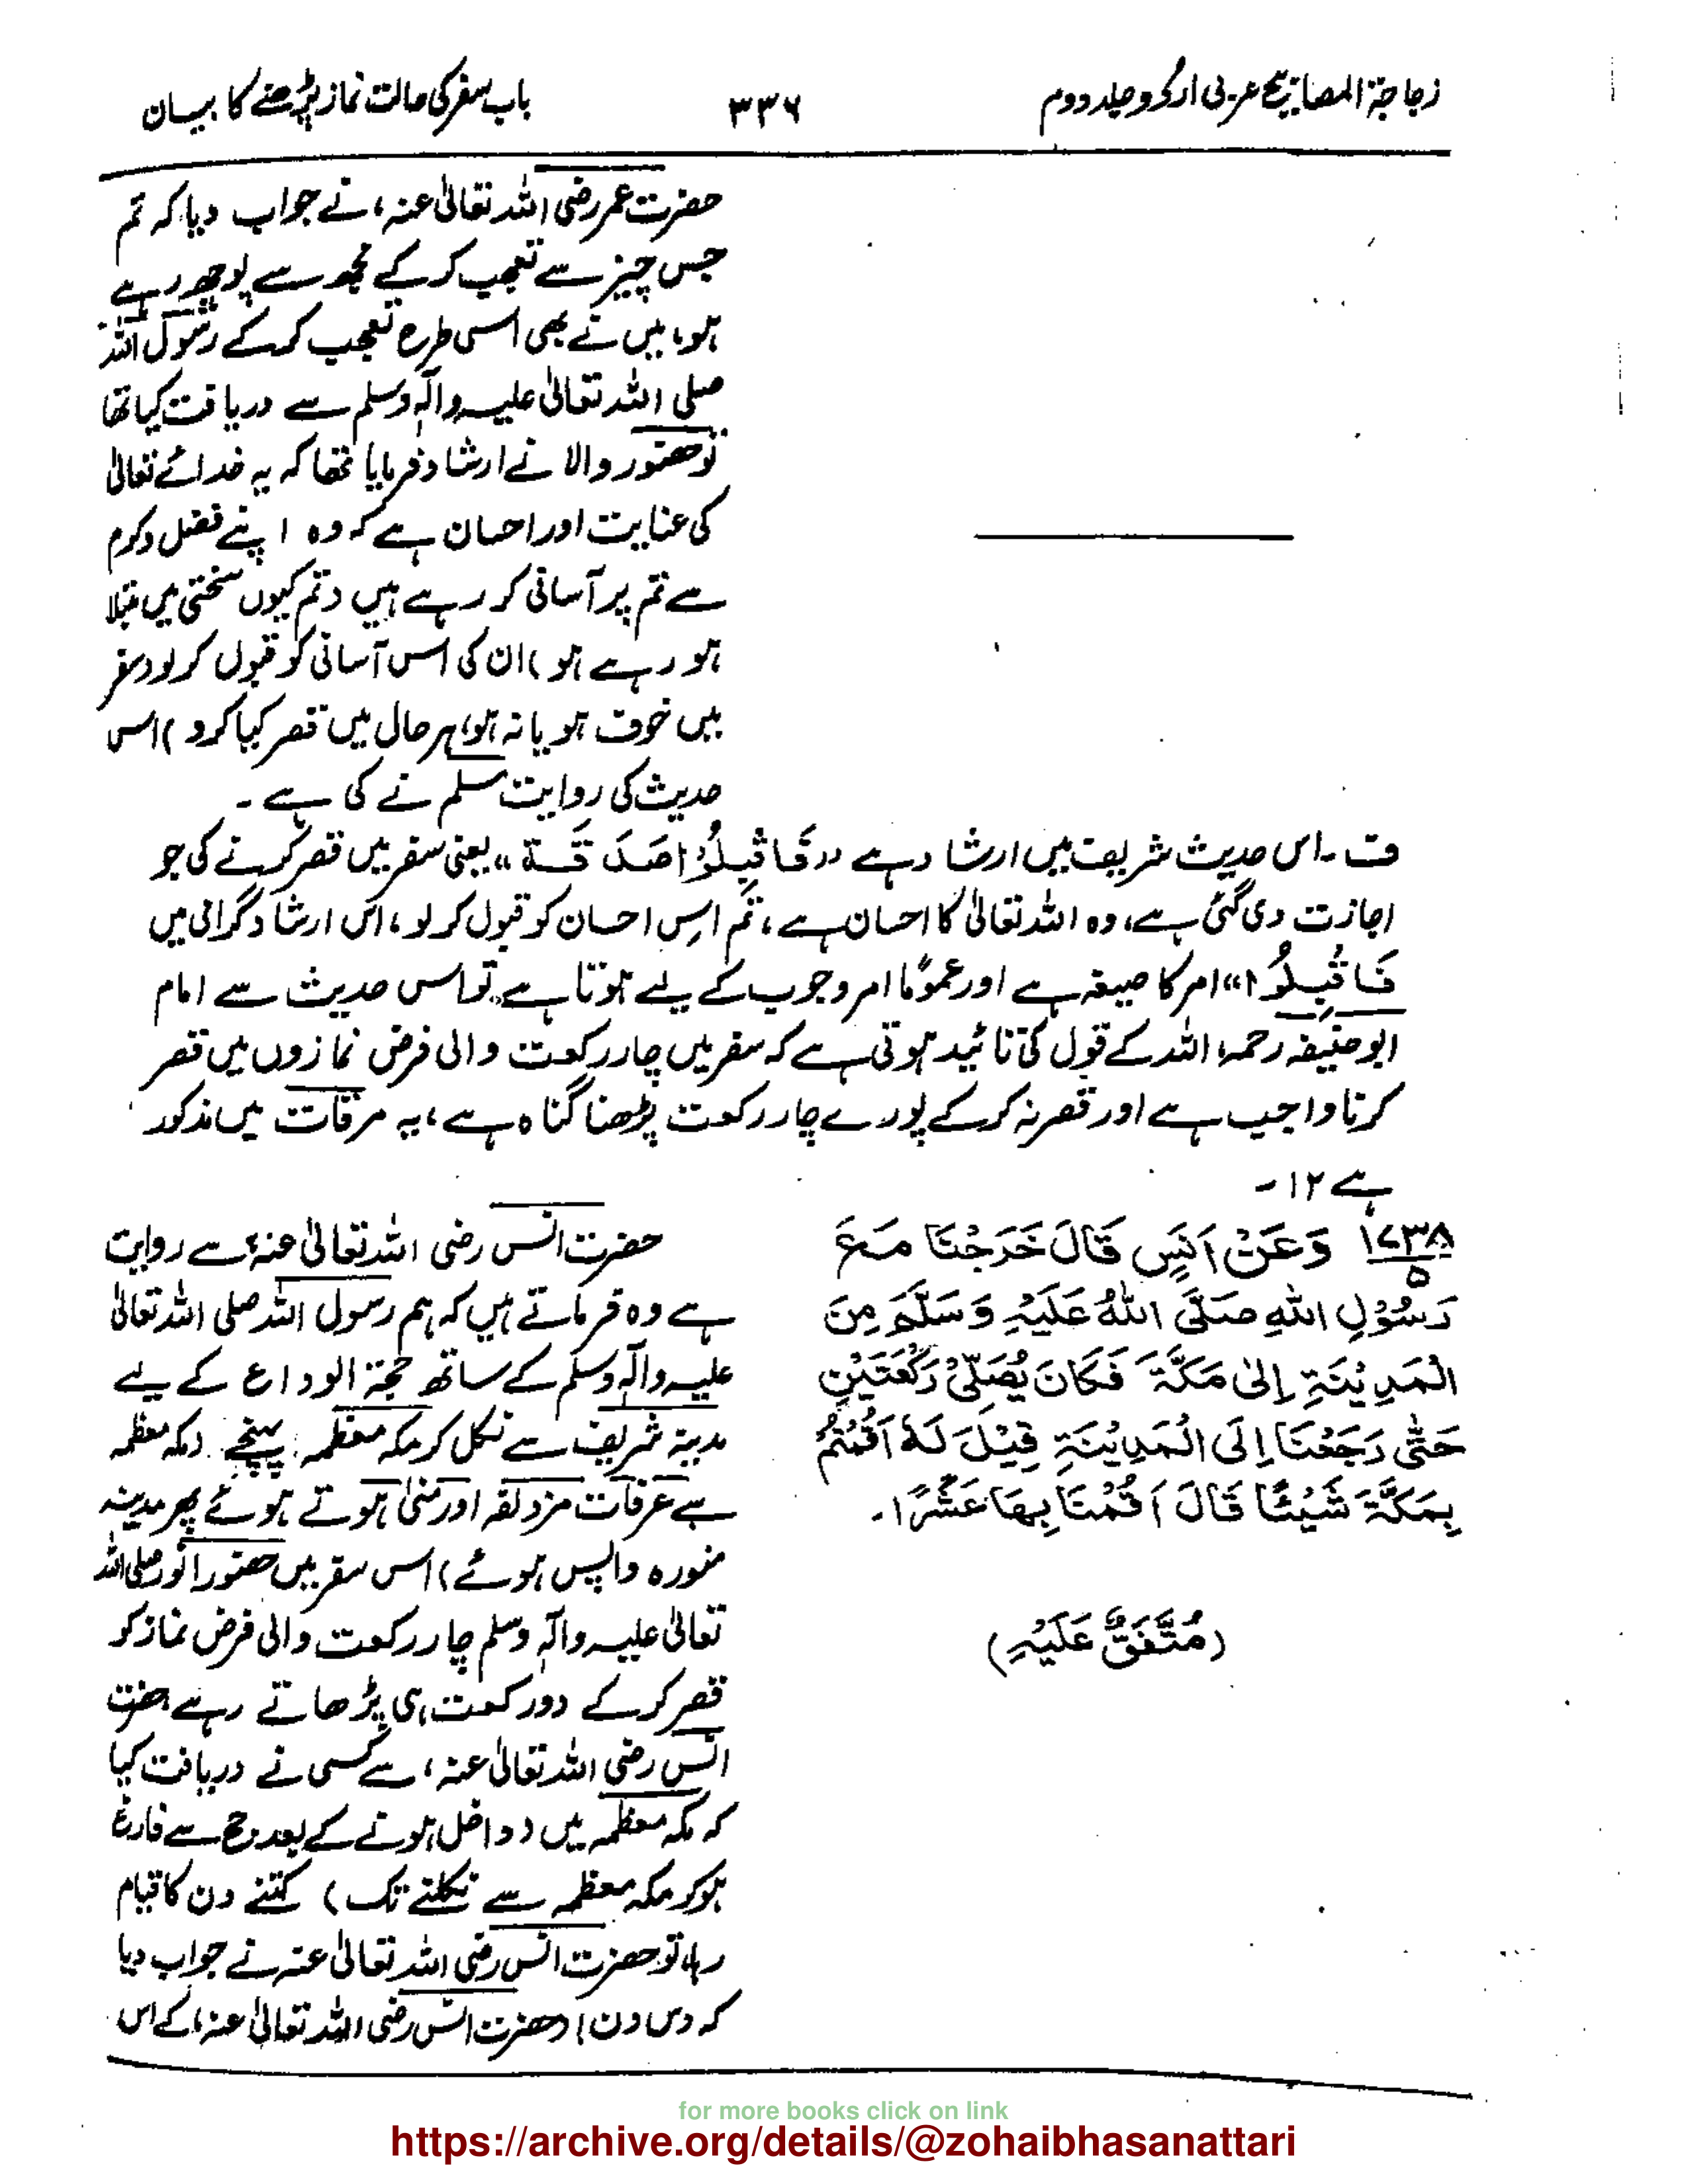 زجاجۃ المصابیح عربی اردو جلد دوم
۳۳۶
باب سفر کی حالت نماز پڑھنے کا بیان
حضرت عمر رضی اللہ تعالیٰ عنہ، نے جواب دیا کہ تم
جس چیز سے تعجب کر کے مجھ سے پوچھ رہے
ہو، میں نے بھی اسی طرح تعجب کر کے رسول اللہ
صلی اللہ تعالیٰ علیہ والہٖ وسلم سے دریافت کیا تھا
تو حضور والا نے ارشاد فرمایا تھا کہ یہ خدائے تعالیٰ
کی عنایت اور احسان ہے کہ وہ اپنے فضل وکرم
سے تم پر آسانی کر رہے ہیں (تم کیوں سختی میں مبتلا
ہو رہے ہو) ان کی اس آسانی کو قبول کر لو (سفر
میں خوف ہو یا نہ ہو، ہر حال میں قصر کیا کرو) اس
حدیث کی روایت مسلم نے کی ہے ۔
ف ۔ اس حدیث شریف میں ارشاد ہے ,,فَاقْبِلُوْا صَدَقَۃً،، یعنی سفر میں قصر کرنے کی جو
اجازت دی گئی ہے، وہ اللہ تعالیٰ کا احسان ہے، تم اس احسان کو قبول کر لو، اس ارشاد گرامی میں
فَاقْبِلُوْا،، امر کا صیغہ ہے اور عمومًا امر وجوب کے لیے ہوتا ہے۔ تو اس حدیث سے امام
ابو حنیفہ رحمہ اللہ کے قول کی تائید ہوتی ہے کہ سفر میں چار رکعت والی فرض نمازوں میں قصر
کرنا واجب ہے اور قصر نہ کر کے پورے چار رکعت پڑھنا گناہ ہے، یہ مرقات میں مذکور
ہے ۱۲ ۔
۱۷۳۸
۵
وَعَنْ اَنَسٍ قَالَ خَرَجْنَا مَعَ
رَسُوْلِ اللّٰہِ صَلَّی اللّٰہُ عَلَیْہِ وَسَلَّمَ مِنَ
الْمَدِیْنَۃِ اِلٰی مَکَّۃَ فَکَانَ یُصَلِّیْ رَکْعَتَیْنِ
حَتّٰی رَجَعْنَا اِلَی الْمَدِیْنَۃِ قِیْلَ لَہٗ اَقَمْتُمْ
بِمَکَّۃَ شَیْئًا قَالَ اَقَمْنَا بِھَا عَشْرًا۔
(مُتَّفَقٌ عَلَیْہِ)
حضرت انس رضی اللہ تعالیٰ عنہ، سے روایت
ہے وہ فرماتے ہیں کہ ہم رسول اللہ صلی اللہ تعالیٰ
علیہ والہٖ وسلم کے ساتھ حجۃ الوداع کے لیے
مدینہ شریف سے نکل کر مکہ معظمہ پہنچے (مکہ معظمہ
سے عرفات مزدلفہ اور منیٰ ہوتے ہوئے پھر مدینہ
منورہ واپس ہوئے) اس سفر میں حضور انور صلی اللہ
تعالیٰ علیہ والہٖ وسلم چار رکعت والی فرض نماز کو
قصر کر کے دو رکعت ہی پڑھاتے رہے حضرت
انس رضی اللہ تعالیٰ عنہ، سے کسی نے دریافت کیا
کہ مکہ معظمہ میں (داخل ہونے کے بعد حج سے فارغ
ہو کر مکہ معظمہ سے نکلنے تک) کتنے دن کا قیام
رہا، تو حضرت انس رضی اللہ تعالیٰ عنہ نے جواب دیا
کہ دس دن) (حضرت انس رضی اللہ تعالیٰ عنہ، کے اس
for more books click on link
https://archive.org/details/@zohaibhasanattari